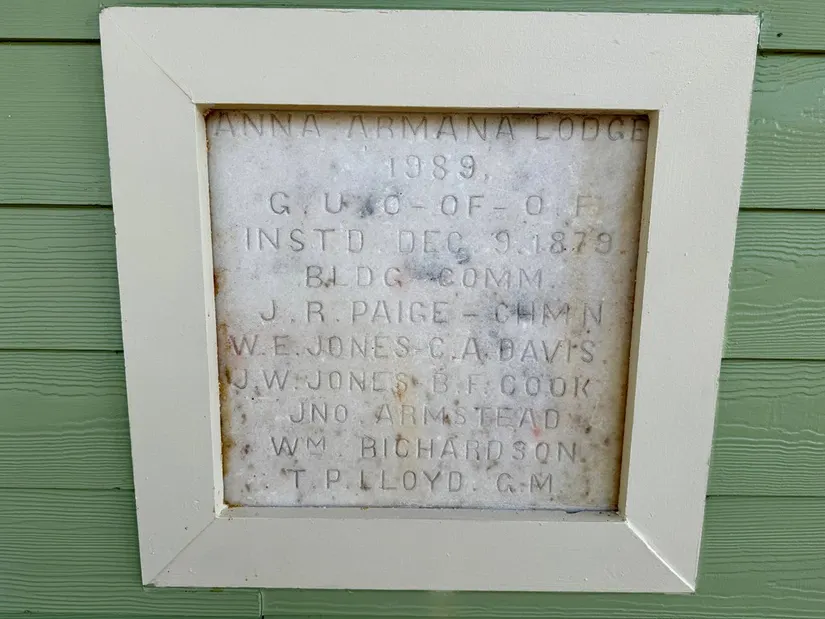 ANNA ARMANA LODGE
1989.
G. U. O-OF-O. F.
INST'D DEC. 9. 1879.
BLDG. COMM.
J. R. PAIGE - CHM'N
W. E. JONES-C. A. DAVIS.
J. W. JONES-B. F. COOK
JNO. ARMSTEAD
WM. RICHARDSON.
T. P. LLOYD. G. M.